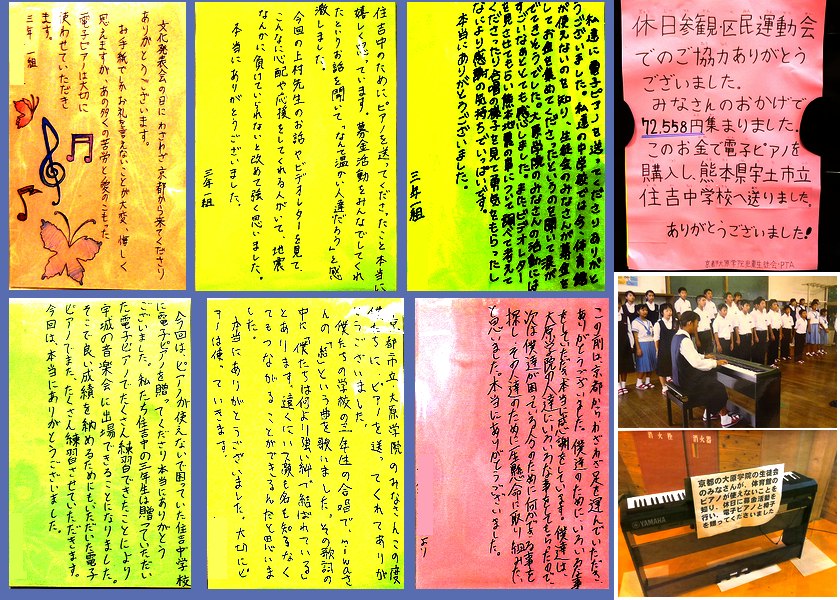 文化発表会の日にわざわざ京都から来てくださり
ありがとうございます。
お手紙でしかお礼を言えないことが大変、悔しく
思えますが、あの数々の苦労と愛のこもった
電子ピアノは大切に
使わせていただき
ます。
三年一組
住吉中のためにピアノを送ってくださったこと本当に
嬉しく思っています。募金活動をみんなでしてくれ
たというお話を聞いて「なんて温かい人達だろう」と感
激しました。
今回の上村先生のお話やビデオレターを見て
こんなに心配や応援をしてくれる人がいて、地震
なんかに負けていられないと改めて強く思いました。
本当にありがとうございました。
三年一組
私達に電子ピアノを送ってくださりありがと
うございました。私達の中学校では今、体育館
が使えないのを知り、生徒会のみなさんが募金を
してお金を集めてくださったというのを聞いて涙が
でてきそうでした。大原学院のみなさんの活動には
すごいなととても感心しました。またビデオレター
を見させてもらい熊本地震の事について調べて考えて
くださったり合唱の様子を見て勇気をもらったし
なにより感謝の気持ちでいっぱいです。
本当にありがとうございました。
三年一組
休日参観・区民運動会
でのご協力ありがとう
ございました。
みなさんのおかげで
72,558円集まりました。
このお金で電子ピアノを
購入し、熊本県宇土市立
住吉中学校へ送りました。
ありがとうございました!
京都大原学院児童生徒会・PTA
今回は、ピアノが使えないで困っていた住吉中学校
に電子ピアノを贈ってくださり本当にありがとう
ございました。私たち住吉中の三年生も贈っていただい
た電子ピアノでたくさん練習できたことにより
宇城の音楽会に出場できることになりました。
そこで良い成績を納めるためにもいただいた電子
ピアノでまた、たくさん練習させていただきます。
今回は、本当にありがとうございました。
京都市立大原学院のみなさん、この度
僕たちに、ピアノを送ってくれてありが
とうございました。
僕たちの学校の三年生の合唱で、miwaさ
んの「結」という曲を歌いました。その歌詞の
中に「僕たちは何より強い絆で結ばれている」
とあります。遠くにいて顔も名も知らなく
てもつながることができるんだと思いま
した。
本当にありがとうございました。大切にピ
アノは使っていきます。
この前は京都からわざわざ足を運んでいただき、
ありがとうございました。僕達のためにいろいろな事
をしていただき、本当に感謝をしています。僕達は、
大原学院の人達にいろいろな事をしてもらったので、
次は僕達が困っている人のために何ができる事を
探し、その人達のために一生懸命に取り組みたい
と思いました。本当にありがとうございました。
より
消火栓
消火器
京都の大原学院の生徒会
のみなさんが、体育館の
ピアノが使えないことを
知り、休日に募金活動を
行い、電子ピアノと椅子
を贈ってくださいました
YAMAHA